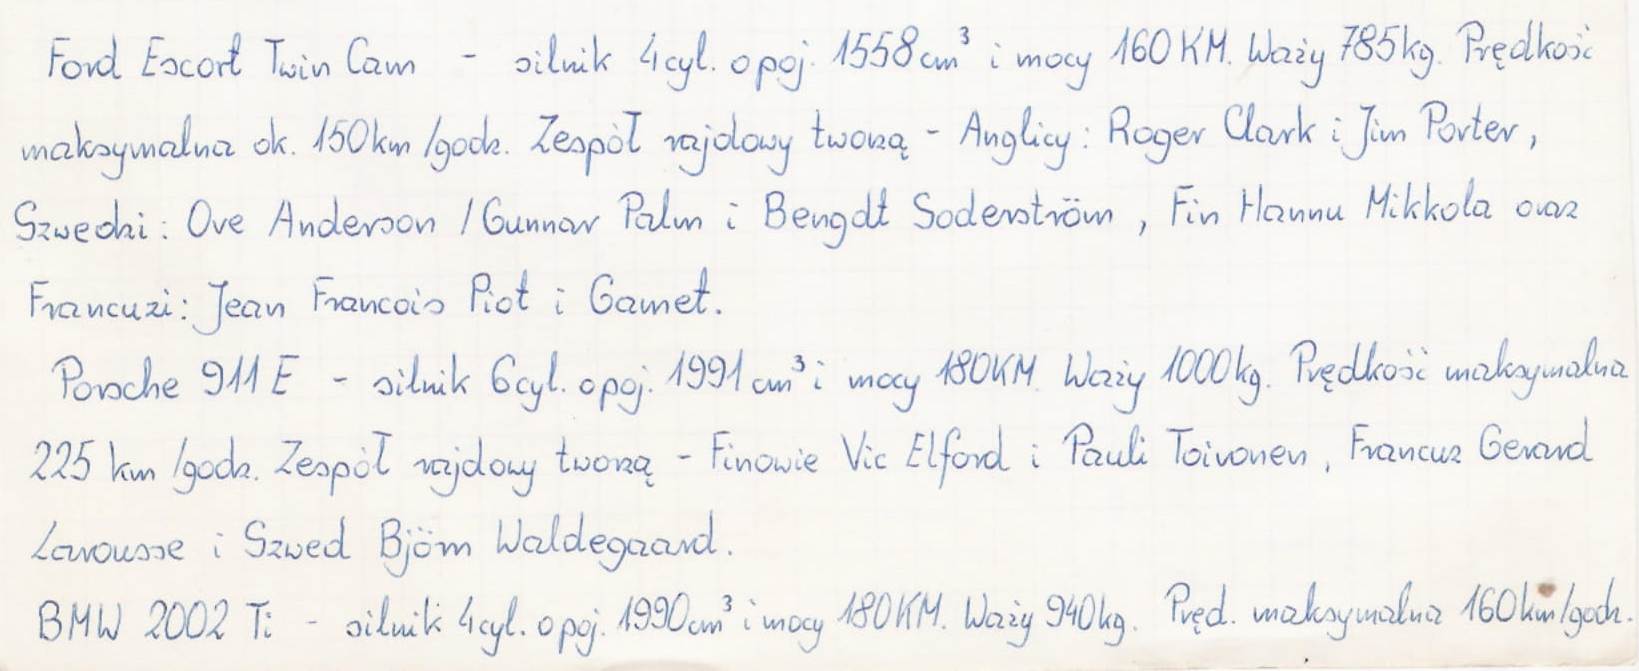 Ford Escort Twin Cam - silnik 4cyl. o poj. 1558cm³ i mocy 160KM. Waży 785kg. Prędkość
maksymalna ok. 150km/godz. Zespół rajdowy tworzą - Anglicy: Roger Clark i Jim Porter,
Szwedzi: Ove Anderson / Gunnar Palm i Bengdt Soderström, Fin Hannu Mikkola oraz
Francuzi: Jean Francois Piot i Gamet.
Porsche 911 E - silnik 6cyl. o poj. 1991 cm³ i mocy 180KM. Waży 1000kg. Prędkość maksymalna
225 km/godz. Zespół rajdowy tworzą - Finowie Vic Elford i Pauli Toivonen, Francuz Gerard
Larousse i Szwed Björn Waldegaard.
BMW 2002 Ti - silnik 4cyl. o poj. 1990cm³ i mocy 180KM. Waży 940kg. Pręd. maksymalna 160km/godz.